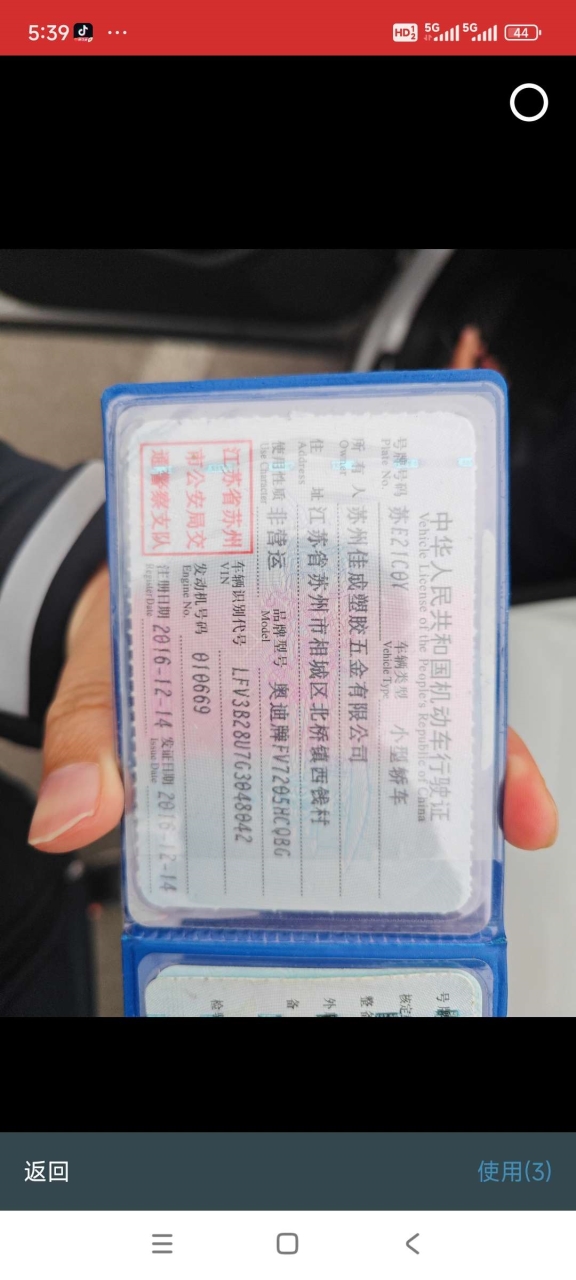 5:39
HD 1 2 5G 5G 44
中华人民共和国机动车行驶证
Vehicle License of the People's Republic of China
号牌号码 苏E21C0Y 车辆类型 小型轿车
Plate No. Vehicle Type
所有人 苏州佳成塑胶五金有限公司
Owner
住址 江苏省苏州市相城区北桥镇西钱村
Address
使用性质 非营运 品牌型号 奥迪牌FV7205HCQBG
Use Character Model
江苏省苏州
市公安局交
通警察支队
车辆识别代号 LFV3B28U7G3048042
VIN
发动机号码 010669
Engine No.
注册日期 2016-12-14 发证日期 2016-12-14
Register Date Issue Date
号牌
核定
整备
外
备
检
返回
使用(3)